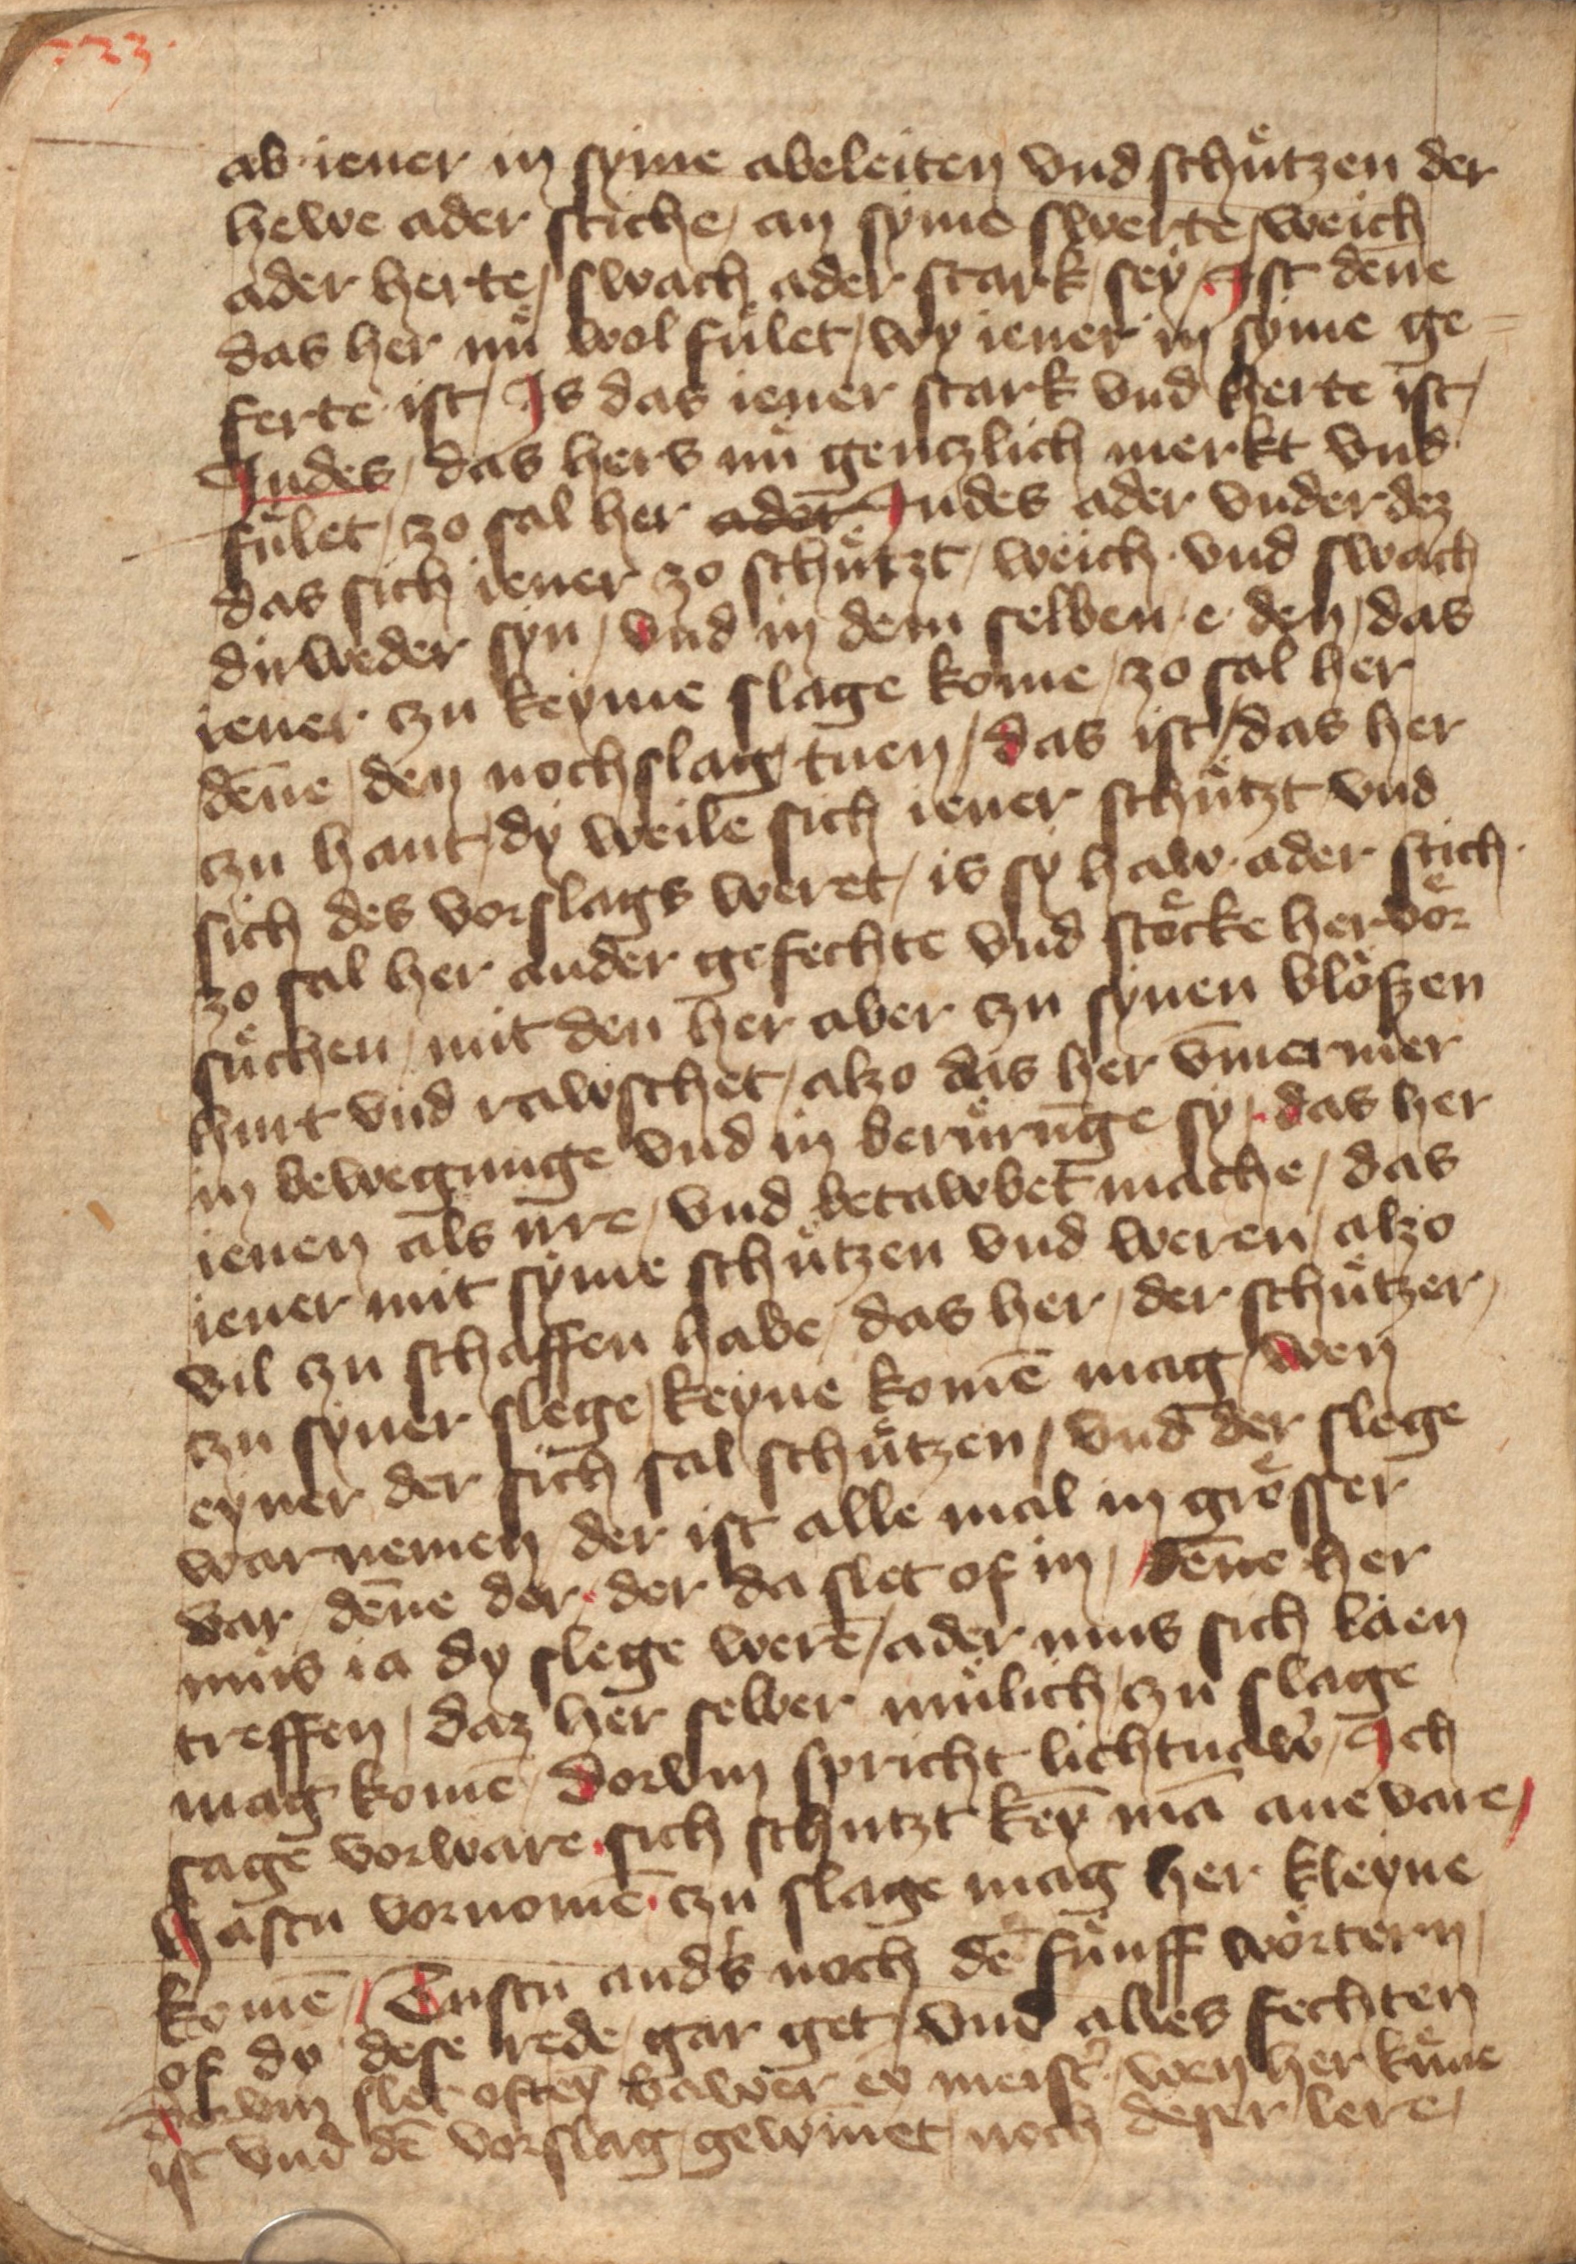 223.
ab iener in syme abeleiten vnd schuͤtzen der
hewe ader stiche / an syme swerte / weich
ader herte / swach ader stark / sey / Ist den̄e
das her nuͤ wol fuͤlet / wy iener in syme ge=
ferte ist / Is das iener stark vnd herte ist /
Indes / das hers nuͤ gentzlich merkt vnd
fuͤlet / zo sal her ader Indes ader vnderdez
das sich iener zo schuͤtzt / weich vnd swach
dirweder syn / vnd in dem selben e den / das
iener czu keyme slage kome / zo sal her
den̄e / den nochslag tuen / das ist / das her
czu hant / dy weile sich iener schuͤtzt vnd
sich des vorslags weret / is sy haw ader stich
zo sal her ander gefechte vnd stoͤcke hervoͤr
suͤchen / mit den her aber czu synen bloͤssen
hurt vnd rawschet / alzo das her vm̄ermer
in bewegunge vnd in beruͤrun̄ge sy / das her
ienen als irre / vnd betawbet mache / das
iener mit syme schuͤtzen vnd weren / alzo
vil czu schaffen habe / das her / der schuͤtzer /
czu syner slege / keyne komē mag / wen
eyner der sich sal schuͤtzen / vnd der slege
war nemen / der ist alle mal in groͤsser
var / den̄e der / der da slet of in / den̄e her
muͤs ia dy slege werē / ader mus sich laen
treffen / daz her selber muͤlich / czu slage
mag komē / dorvm spricht lichtnawer / Ich
sage vorware / sich schutzt keȳ mā ane vare /
Hastu vornomē / czu slage mag her kleyne
komē / Tustu anders noch dē fuͤnff woͤrtern /
of dy dese rede / gar get / vnd alles fechten
dorvm slet oftey bawer ey meister / wen her kuͤne
ist vnd dē vorslag / gewinet / noch deser lere /